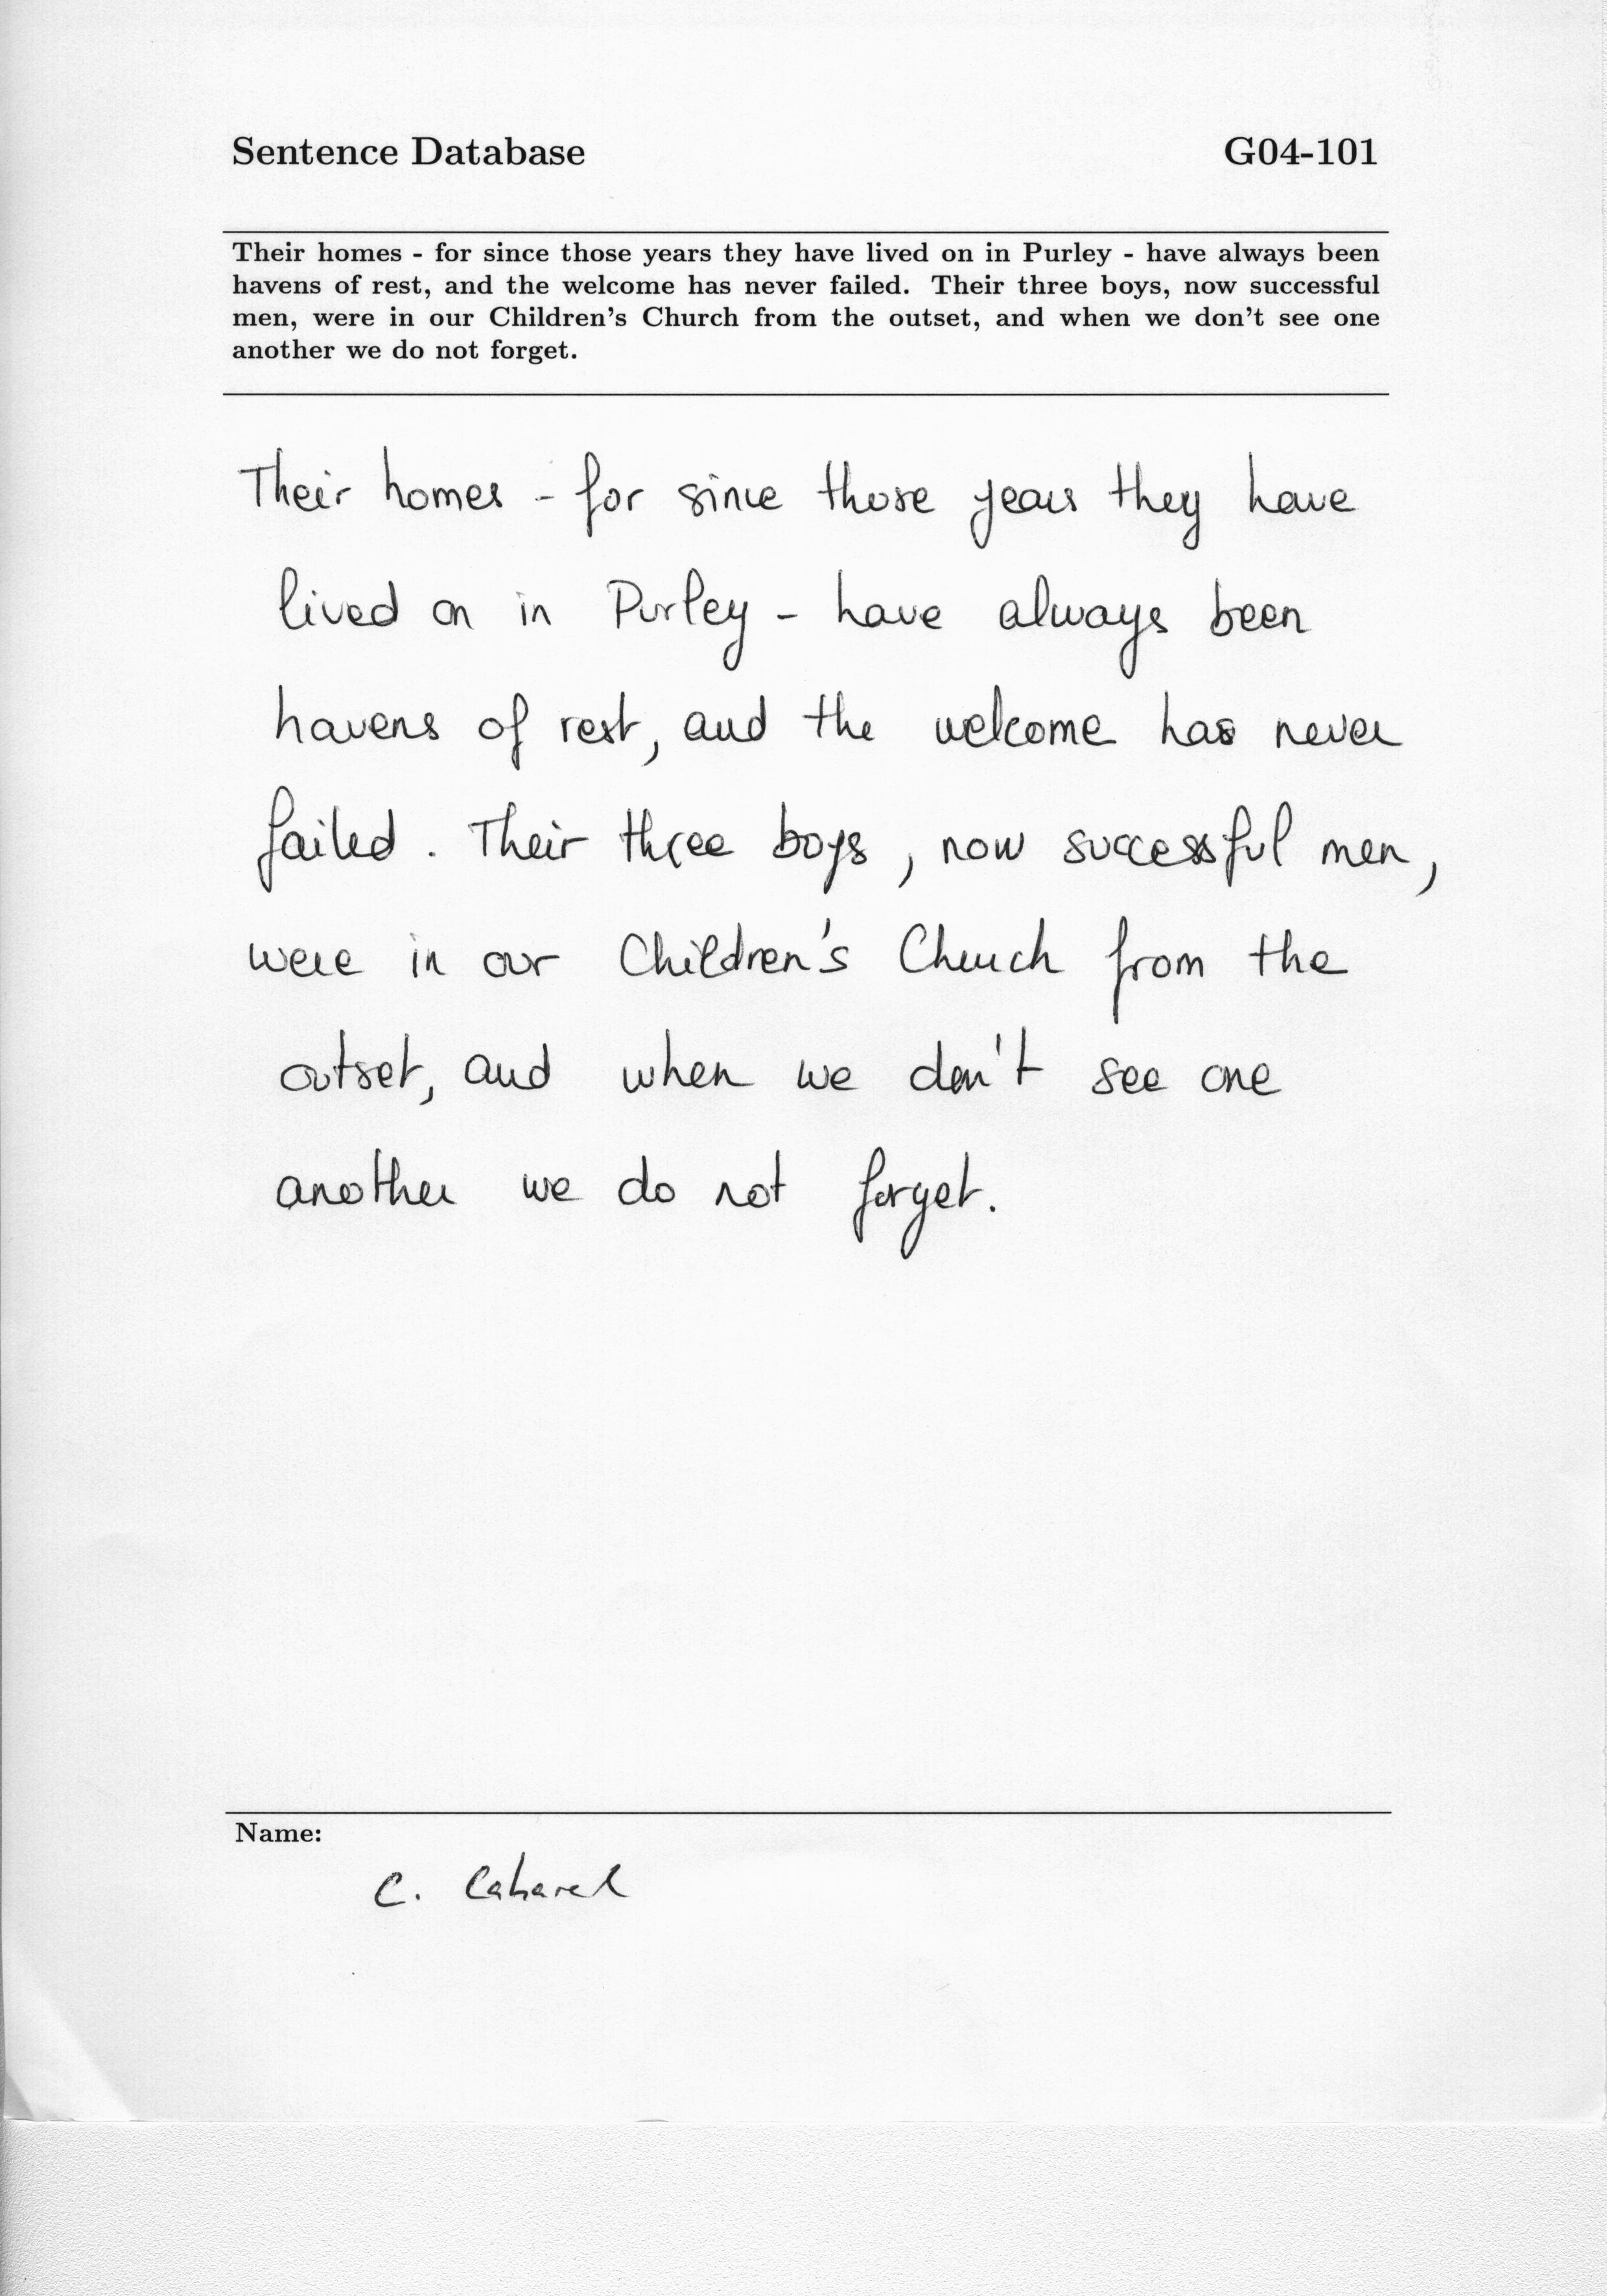 Sentence Database G04-101
Their homes - for since those years they have lived on in Purley - have always been
havens of rest, and the welcome has never failed. Their three boys, now successful
men, were in our Children's Church from the outset, and when we don't see one
another we do not forget.
Their homes - for since those years they have
lived on in Purley - have always been
havens of rest, and the welcome has never
failed. Their three boys, now successful men,
were in our Children's Church from the
outset, and when we don't see one
another we do not forget.
Name:
C.